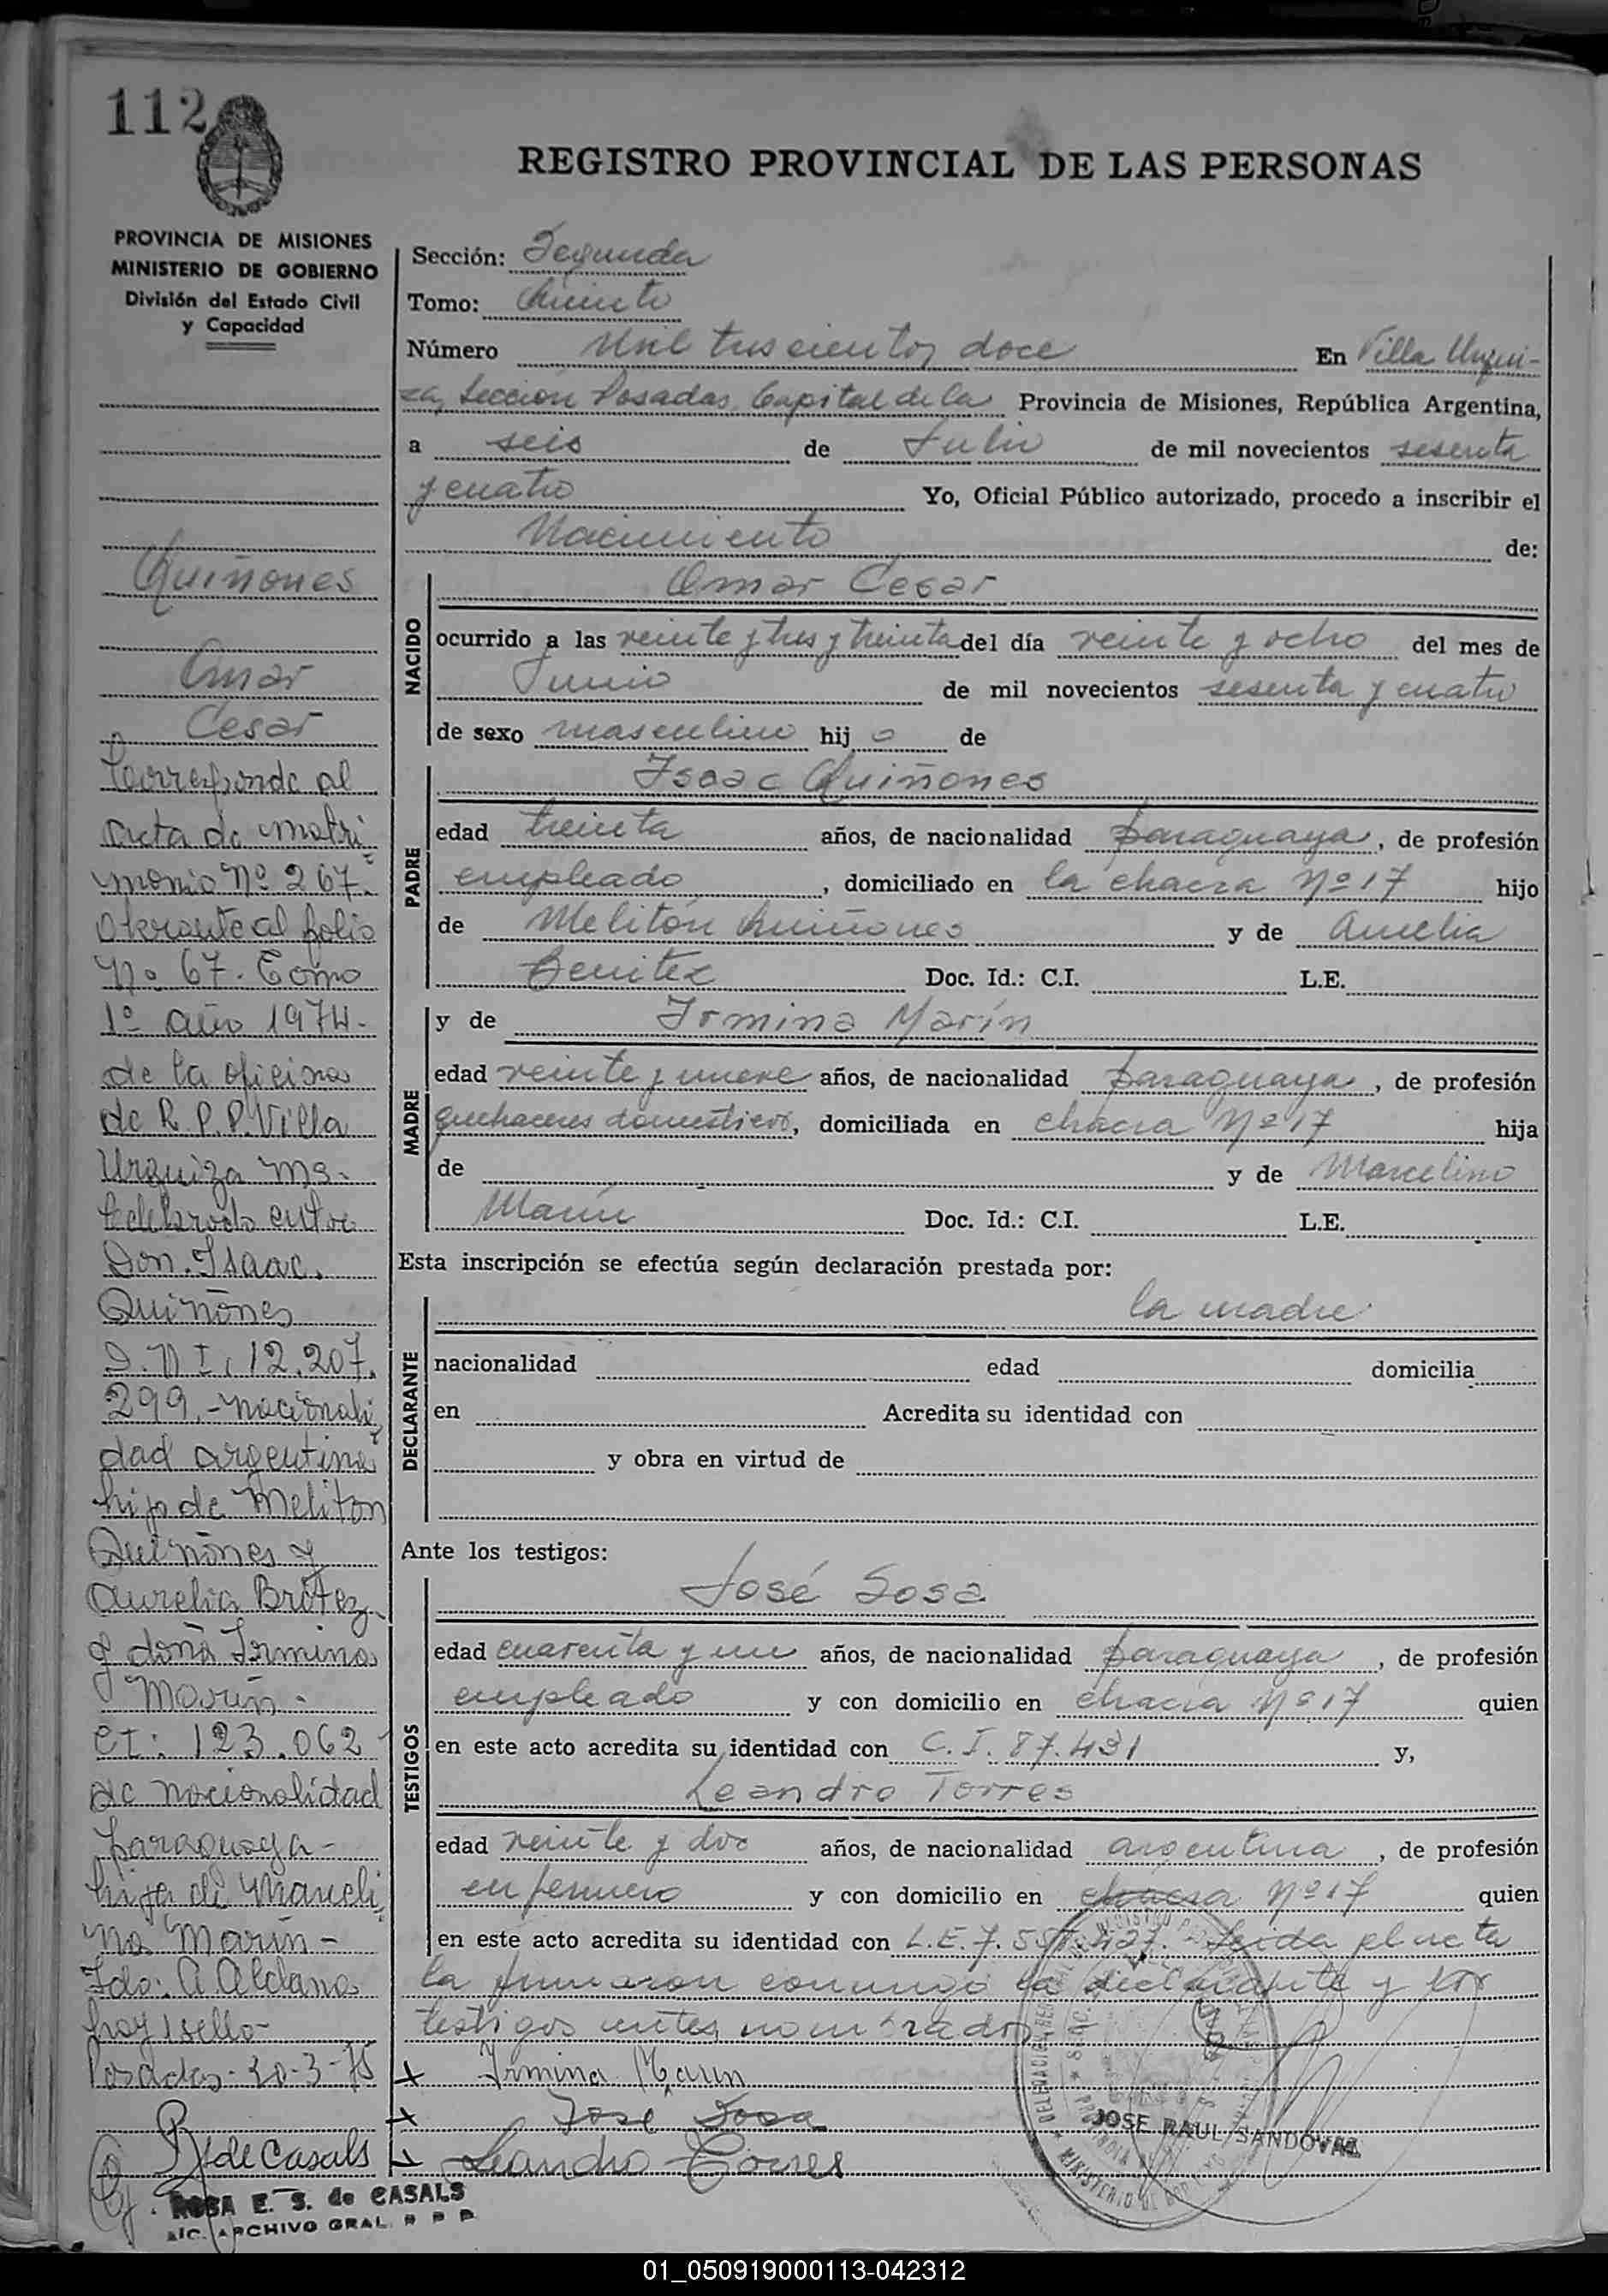 112
REGISTRO PROVINCIAL DE LAS PERSONAS
PROVINCIA DE MISIONES
MINISTERIO DE GOBIERNO
División del Estado Civil
y Capacidad
Quiñones
Omar
Cesar
Corresponde al
acta de matri
monio Nº 267.
obrante al folio
Nº 67. Tomo
1º año 1974.
de la oficina
de R. P. P. Villa
Urquiza Ms.
Celebrado entre
Don Isaac
Quiñones
D.N I. 12.207.
299.- nacionali
dad argentina
hijo de Meliton
Quiñones y
Aurelia
y doña Irmina
Marin.
CI: 123.062
de nacionalidad
paraguaya-
hija de Marceli
no Marin-
Fdo: A Aldana
hay 1 sello-
Posadas-20-3-75
R de Casals
ROSA E. S. de CASALS
ARCHIVO GRAL. R P P
Sección: Segunda
Tomo: Quinto
Número Mil trescientos doce En Villa Urqui-
za, Sección Posadas, Capital de la Provincia de Misiones, República Argentina,
a seis de Julio de mil novecientos sesenta
y cuatro Yo, Oficial Público autorizado, procedo a inscribir el
Nacimiento de:
NACIDO
Omar Cesar
ocurrido a las veinte y tres y treinta del día veinte y ocho del mes de
Junio de mil novecientos sesenta y cuatro
de sexo masculino hij o de
PADRE
Isaac Quiñones
edad treinta años, de nacionalidad paraguaya, de profesión
empleado, domiciliado en la chacra Nº 17 hijo
de Melitón Quiñones y de Amelia
Benitez Doc. Id.: C.I. L.E.
MADRE
y de Irmina Marín
edad veinte y nueve años, de nacionalidad paraguaya, de profesión
quehaceres domesticos, domiciliada en chacra Nº 17 hija
de y de Marcelino
Marin Doc. Id.: C.I. L.E.
Esta inscripción se efectúa según declaración prestada por:
DECLARANTE
la madre
nacionalidad edad domicilia
en Acredita su identidad con
y obra en virtud de
Ante los testigos:
TESTIGOS
José Sosa
edad cuarenta y un años, de nacionalidad paraguaya, de profesión
empleado y con domicilio en chacra Nº 17 quien
en este acto acredita su identidad con C.I. 87.431 y,
Leandro Torres
edad veinte y dos años, de nacionalidad argentina, de profesión
enfermero y con domicilio en chacra Nº 17 quien
en este acto acredita su identidad con L.E. 7. Leida el acta
la firmaron conmigo la declarante y los
testigos antes nombrados
Irmina Marin
José Sosa
Leandro Torres
JOSE RAUL SANDOVAL
01_050919000113-042312